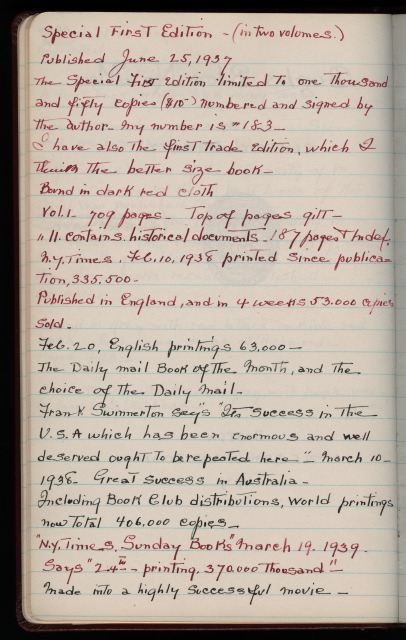 Special First Edition - (in two volumes.)
Published June 25, 1937
The Special First Edition limited To one Thousand
and fifty copies ($10-) numbered and signed by
the author. My number is "183-
I have also the first trade Edition, which I
Think The better size book-
Bound in dark red cloth
Vol. 1- 709 pages- Top of pages gilt-
" 11. contains historical documents- 187 pages & Index.
N.y. Times. Feb. 10, 1938 printed since publica-
tion, 335,500-
Published in England, and in 4 weeks 53.000 copies
Sold-
Feb. 20, English printings 63,000-
The Daily mail Book of The Month, and the
choice of The Daily Mail-
Frank Swinnerton say's "Its success in the
U.S.A which has been enormous and well
deserved ought To be repeated here"- March 10-
1938- Great success in Australia-
Including Book Club distributions, World printings
now Total 406,000 copies-
"N.y. Times, Sunday Books" March 19. 1939.
Says "24th- printing. 370.000 Thousand"-
Made into a highly successful movie-